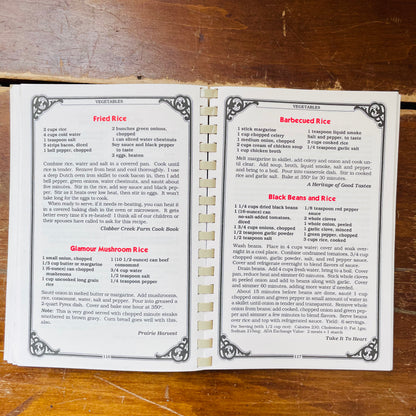 VEGETABLES
Fried Rice
2 cups rice
4 cups cold water
1 teaspoon salt
5 strips bacon, diced
1 bell pepper, chopped
2 bunches green onions,
chopped
1 can sliced water chestnuts
Soy sauce and black pepper
to taste
2 eggs, beaten
Combine rice, water and salt in a covered pan. Cook until
rice is tender. Remove from heat and cool thoroughly. I use
a deep Dutch oven iron skillet to cook bacon in, then I add
bell pepper, green onions, water chestnuts, and sauté about
five minutes. Stir in the rice, add soy sauce and black pep-
per. Stir as it heats over low heat, then stir in eggs. It won't
take long for the eggs to cook.
When ready to serve, if it needs re-heating, you can heat it
in a covered baking dish in the oven or microwave. It gets
better every time it's re-heated! I think all of our children or
their spouses have called to ask for this recipe.
Clabber Creek Farm Cook Book
Glamour Mushroom Rice
1 small onion, chopped
1/3 cup butter or margarine
1 (6-ounce) can chopped
mushrooms
1 cup uncooked long grain
rice
1 (10 1/2-ounce) can beef
consommé
3/4 cup water
1/2 teaspoon salt
1/4 teaspoon pepper
Sauté onion in melted butter or margarine. Add mushrooms,
rice, consommé, water, salt and pepper. Pour into greased a
2-quart Pyrex dish. Cover and bake one hour at 350°.
Note: This is very good served with chopped minute steaks
smothered in brown gravy. Corn bread goes well with this,
too.
Prairie Harvest
VEGETABLES
Barbecued Rice
1 stick margarine
1 cup chopped celery
1 medium onion, chopped
2 cups cream of chicken soup
1 cup chicken broth
1 teaspoon liquid smoke
Salt and pepper, to taste
3 cups cooked rice
1/4 teaspoon garlic salt
Melt margarine in skillet, add celery and onion and cook un-
til clear. Add soup, broth, liquid smoke, salt and pepper,
and bring to a boil. Pour into casserole dish. Stir in cooked
rice and garlic salt. Bake at 350° for 30 minutes.
A Heritage of Good Tastes
Black Beans and Rice
1 1/4 cups dried black beans
1 (16-ounce) can
no-salt-added tomatoes,
diced
3 3/4 cups onions, chopped
1/2 teaspoon garlic powder
1/2 teaspoon salt
1/8 teaspoon red pepper
sauce
2 whole cloves
1 whole onion, peeled
1 garlic clove, minced
1 green pepper, chopped
3 cups rice, cooked
Wash beans. Place in 4 cups water; cover and soak over-
night in a cool place. Combine undrained tomatoes, 3/4 cup
chopped onion, garlic powder, salt, and red pepper sauce.
Cover and refrigerate overnight to blend flavors of sauce.
Drain beans. Add 4 cups fresh water, bring to a boil. Cover
pan, reduce heat and simmer 60 minutes. Stick whole cloves
in peeled onion and add to beans along with garlic. Cover
and simmer 60 minutes, adding more water if needed.
About 15 minutes before beans are done, sauté 1 cup
chopped onion and green pepper in small amount of water in
a skillet until onion is tender and transparent. Remove whole
onion from beans; add cooked, chopped onion and green pep-
per and simmer a few minutes to blend flavors. Serve beans
over rice and top with refrigerated sauce. Yield: 6 servings.
Take It To Heart